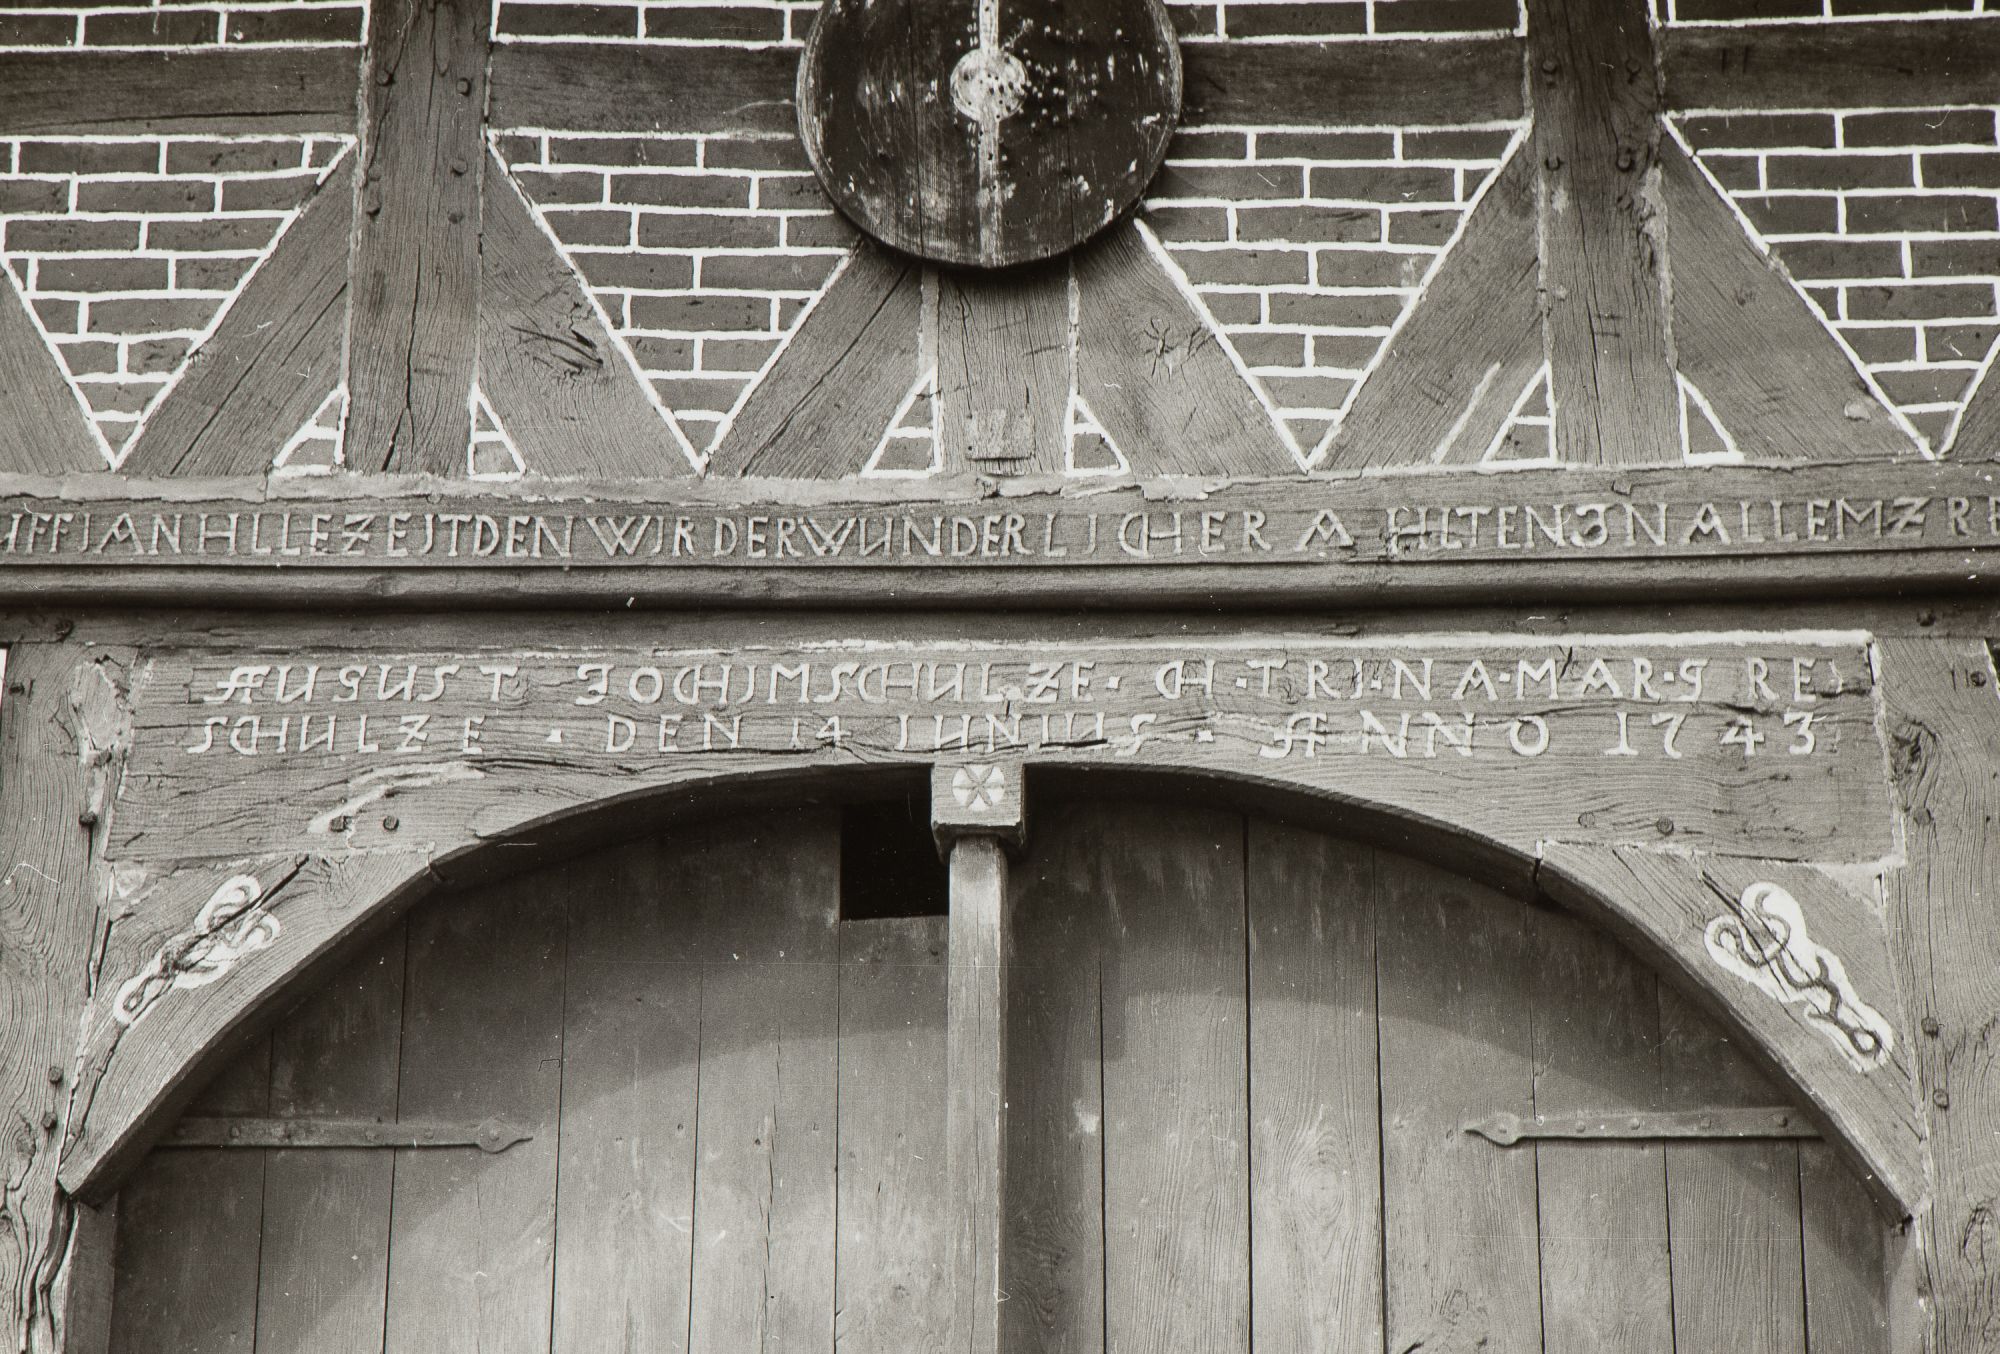 UFFJANHLLEZEJTDENWJRDERWUNDERLJCHERAHLTENJNALLEMZRE
AUGUST JOCHJMSCHULZE· CH·TRJ·NA·MAR·G RE
SCHULZE · DEN 14 IUNIUS · ANNO 1743